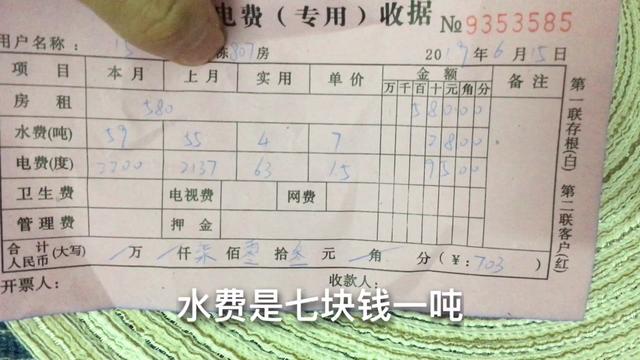 电费(专用)收据 №9353585
用户名称: 栋807房 2017年6月15日
项目 本月 上月 实用 单价 金额 备注
万 千 百 十 元 角 分
房租 580 58000
水费(吨) 59 55 4 7 2800
电费(度) 2200 2137 63 1.5 9500
卫生费 电视费 网费
管理费 押金
合计人民币(大写) 万 仟 柒 佰 拾 叁 元 角 分 (¥: 703)
开票人: 收款人:
第一联存根(白) 第二联客户(红)
水费是七块钱一吨